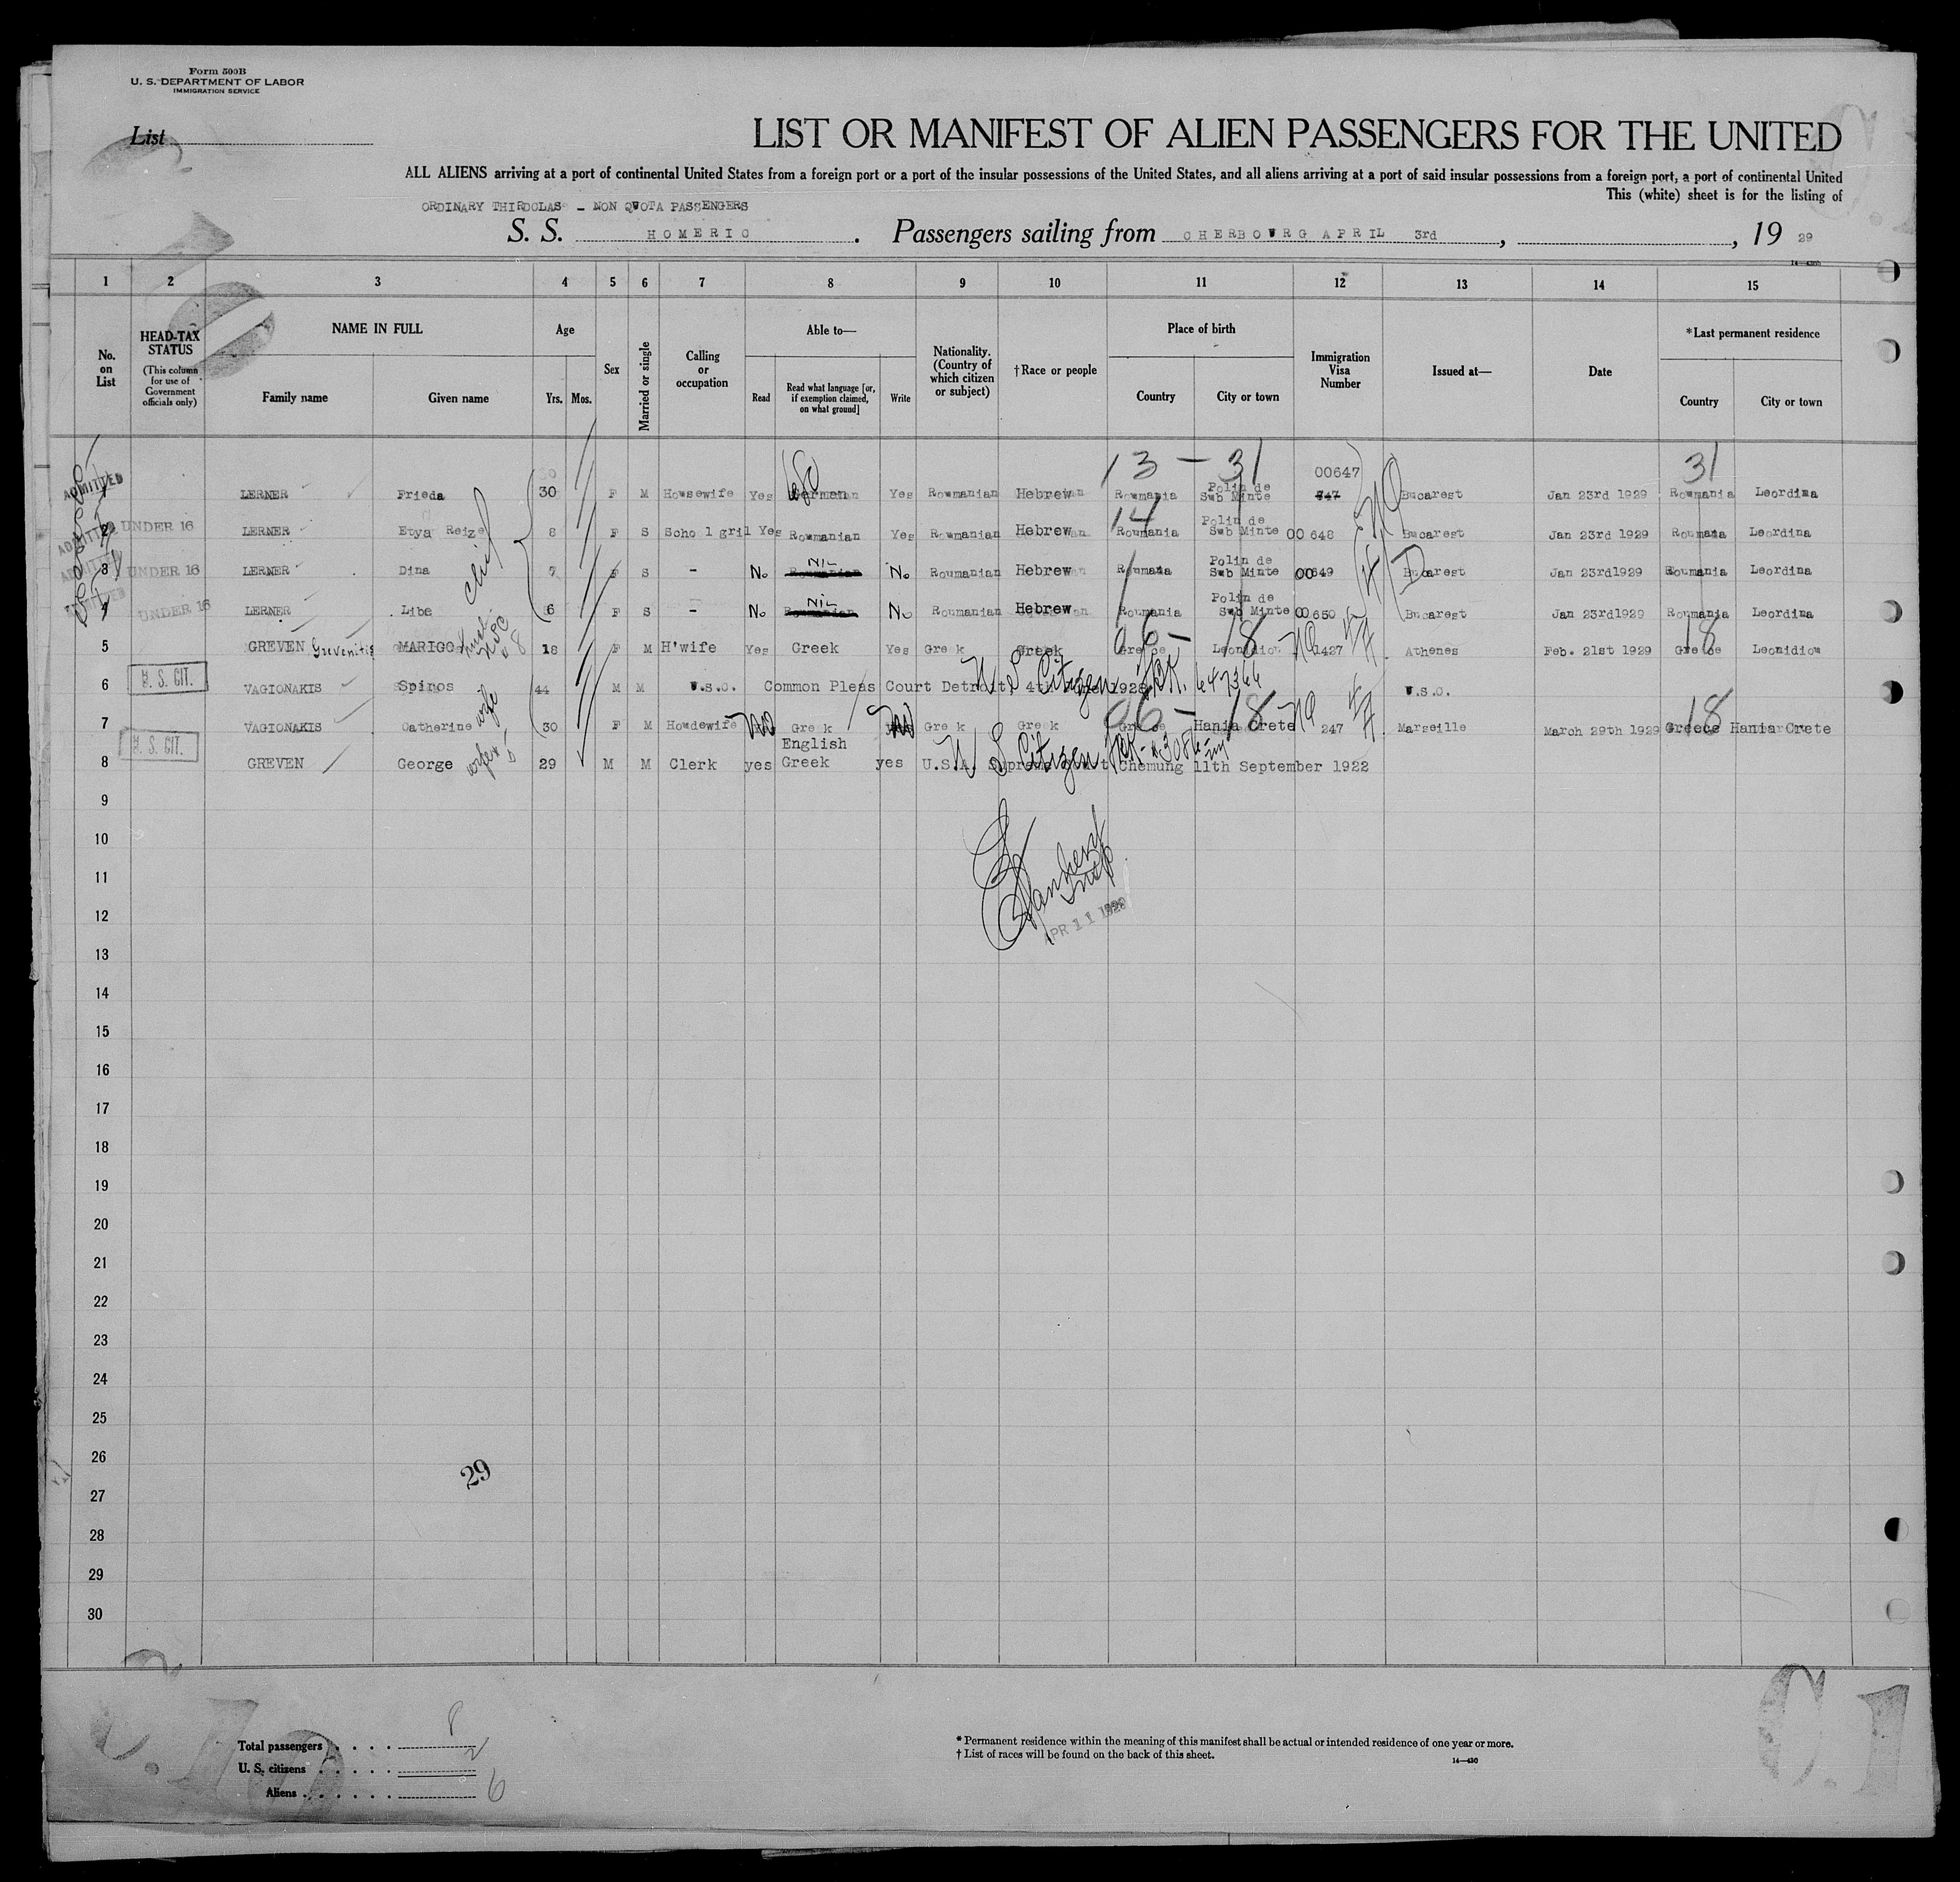 Form 500B
U. S. DEPARTMENT OF LABOR
IMMIGRATION SERVICE
List
LIST OR MANIFEST OF ALIEN PASSENGERS FOR THE UNITED
ALL ALIENS arriving at a port of continental United States from a foreign port or a port of the insular possessions of the United States, and all aliens arriving at a port of said insular possessions from a foreign port, a port of continental United
This (white) sheet is for the listing of
ORDINARY THIRDCLAS - NON QUOTA PASSENGERS
S. S. HOMERIC. Passengers sailing from CHERBOURG APRIL 3rd, , 19 29
1 2 3 4 5 6 7 8 9 10 11 12 13 14 15
No. on List
HEAD-TAX STATUS
(This column for use of Government officials only)
NAME IN FULL
Family name
Given name
Age
Yrs. Mos.
Sex
Married or single
Calling or occupation
Able to—
Read
Read what language [or, if exemption claimed, on what ground]
Write
Nationality. (Country of which citizen or subject)
†Race or people
Place of birth
Country
City or town
Immigration Visa Number
Issued at—
Date
*Last permanent residence
Country
City or town
13 - 31 00647 31
ADMITTED LERNER Frieda 30 F M Housewife Yes German Yes Roumanian Hebrew Roumania Polin de Sub Minte 647 Bucarest Jan 23rd 1929 Roumania Leordina
14
2 ADMITTED UNDER 16 LERNER Etya Reizel 8 F S Scho l gril Yes Roumanian Yes Roumanian Hebrew Roumania Polin de Sub Minte 00 648 Bucarest Jan 23rd 1929 Roumania Leordina
3 ADMITTED UNDER 16 LERNER Dina 7 F S - No Nil Roumanian No Roumanian Hebrew Roumania Polin de Sub Minte 00649 Bucarest Jan 23rd1929 Roumania Leordina
4 UNDER 16 LERNER Liba 6 F S - No Nil Roumanian No Roumanian Hebrew Roumania Polin de Sub Minte 00650 Bucarest Jan 23rd1929 Roumania Leordina
5 GREVEN Grevenitis MARIGO 18 F M H'wife Yes Greek Yes Gre k Greek Greece Leonidiou 1427 Athenes Feb. 21st 1929 Greece Leonidiou
6 U. S. CIT. VAGIONAKIS Spiros 44 M M U.S.C. Common Pleas Court Detroit 4th 1928 U S Citizen 647366 U.S.C.
7 VAGIONAKIS Catherine wife 30 F M Howdewife No Greek No Gre k Greek Greece Hania Crete 247 Marseille March 29th 1929 Greece Hania Crete
U. S. CIT.
8 GREVEN George 29 M M Clerk yes English Greek yes U.S.A. Chemung 11th September 1922 U S Citizen
9
10
11
12
APR 11 1929
13
14
15
16
17
18
19
20
21
22
23
24
25
26
29
27
28
29
30
Total passengers 8
U. S. citizens 2
Aliens 6
* Permanent residence within the meaning of this manifest shall be actual or intended residence of one year or more.
† List of races will be found on the back of this sheet.
14—430